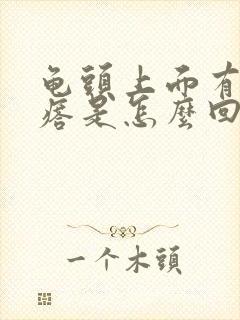 龟頭上面有
痞是怎麼回
一个木頭